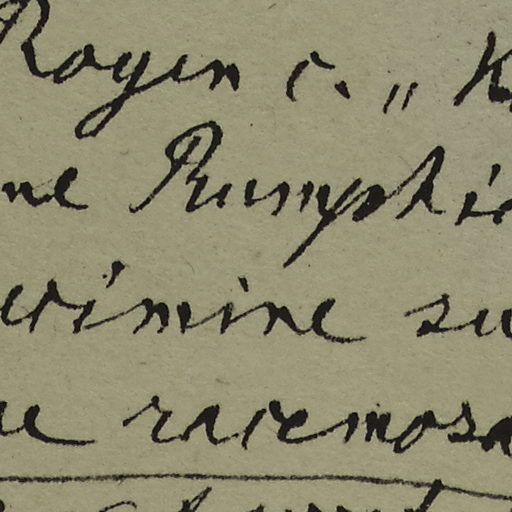 Royen c. „ K
ne Rumphi
crimine su
ae racemosa